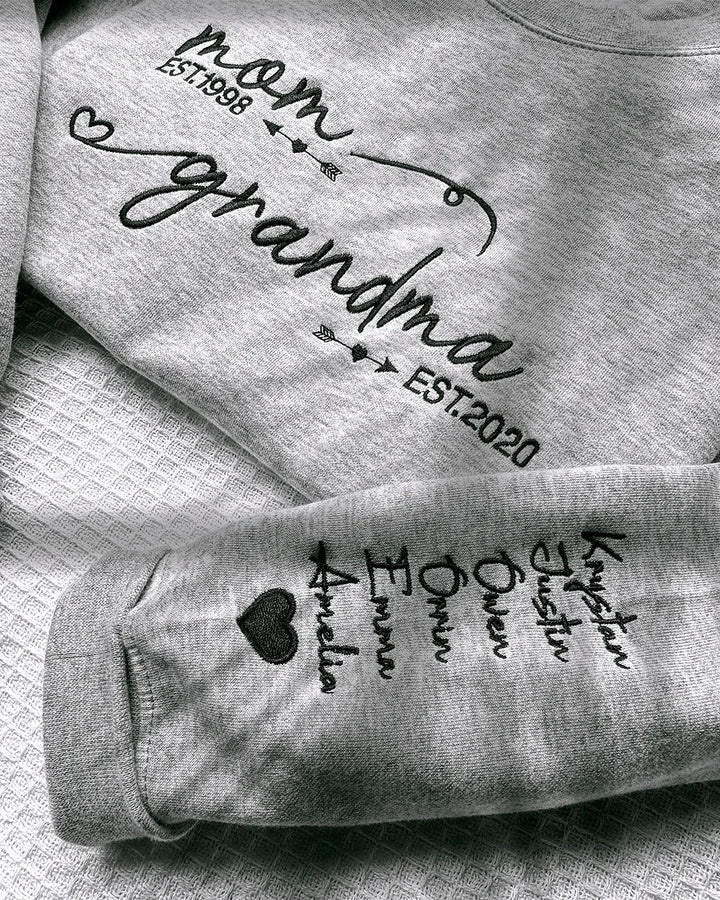 mom
EST.1998
grandma
EST.2020
Krystan
Justin
Owen
Omin
Emma
Amelia